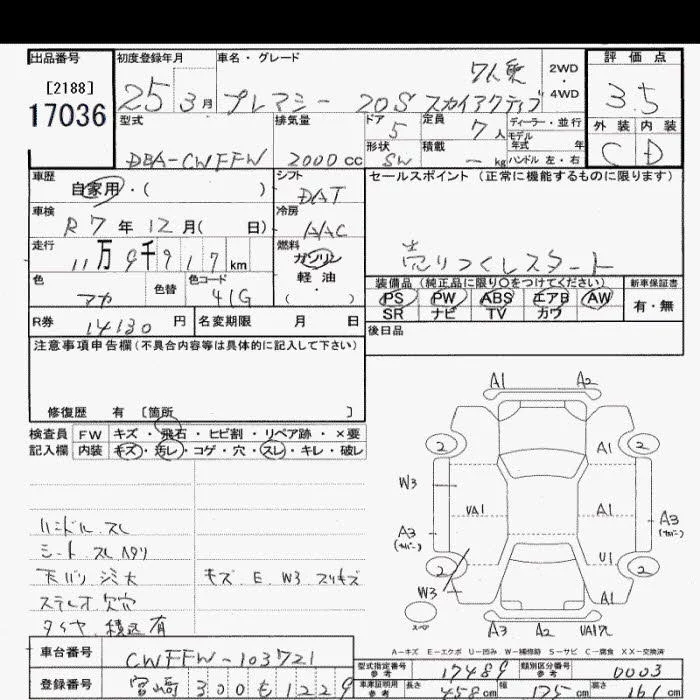 出品番号
[2188]
17036
初度登録年月
25 3月
車名・グレード
7人乗
プレマシー 20S スカイアクティブ
2WD
4WD
評価点
3.5
外装 内装
C D
型式
DBA-CWFFW
排気量
2000 cc
ドア 5
定員 7人
ディーラー・並行
モデル年式 年
形状 SW
積載 - kg
ハンドル 左・右
車歴
自家用・( )
シフト
DAT
セールスポイント (正常に機能するものに限ります)
売りつくしスタート
車検
R7年12月( 日)
冷房
AAC
走行
11万9千917km
燃料
ガソリン
軽・油
( ・ )
色
アカ
色替
色コード
41G
装備品 (純正品に限り○をつけてください)
新車保証書
PS PW ABS エアB AW
SR ナビ TV カワ
有・無
R券 14130円
名変期限 月 日
後日品
注意事項申告欄 (不具合内容等は具体的に記入して下さい)
修復歴 有 [箇所 ]
検査員
記入欄
FW キズ・飛石・ヒビ割・リペア跡・×要
内装 キズ・汚レ・コゲ・穴・スレ・キレ・破レ
ハンドル スレ
シート スレ ヘタリ
天バリ シミ大
キズ E W3 スリキズ
ステレオ欠穴
タイヤ 積込有
A1 A2
2 2
A1
W3
VA1 A1
A3 A3
U1
2 2
W3
A1
スペア
A3 A2 VA1穴
A－キズ E－エクボ U－凹み W－補修跡 S－サビ C－腐食 XX－交換済
車台番号
CWFFW-103721
登録番号
宮崎300も1229
型式指定番号
参考
17489
類別区分番号
参考
0003
車庫証明用
参考
長さ 458cm
幅 175cm
高さ 161cm